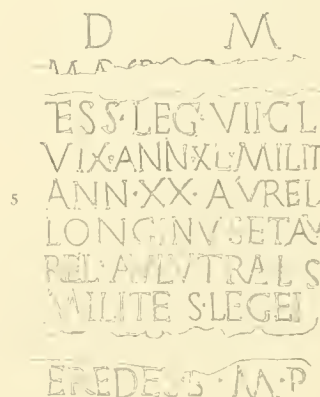 D M
ESS·LEG·VII·CL
VIX·ANN·XL·MILIT
5 ANN·XX·AVREL
LONGINVSETAV
REL· S
MILITE S·LEGEI
EREDES · M·P